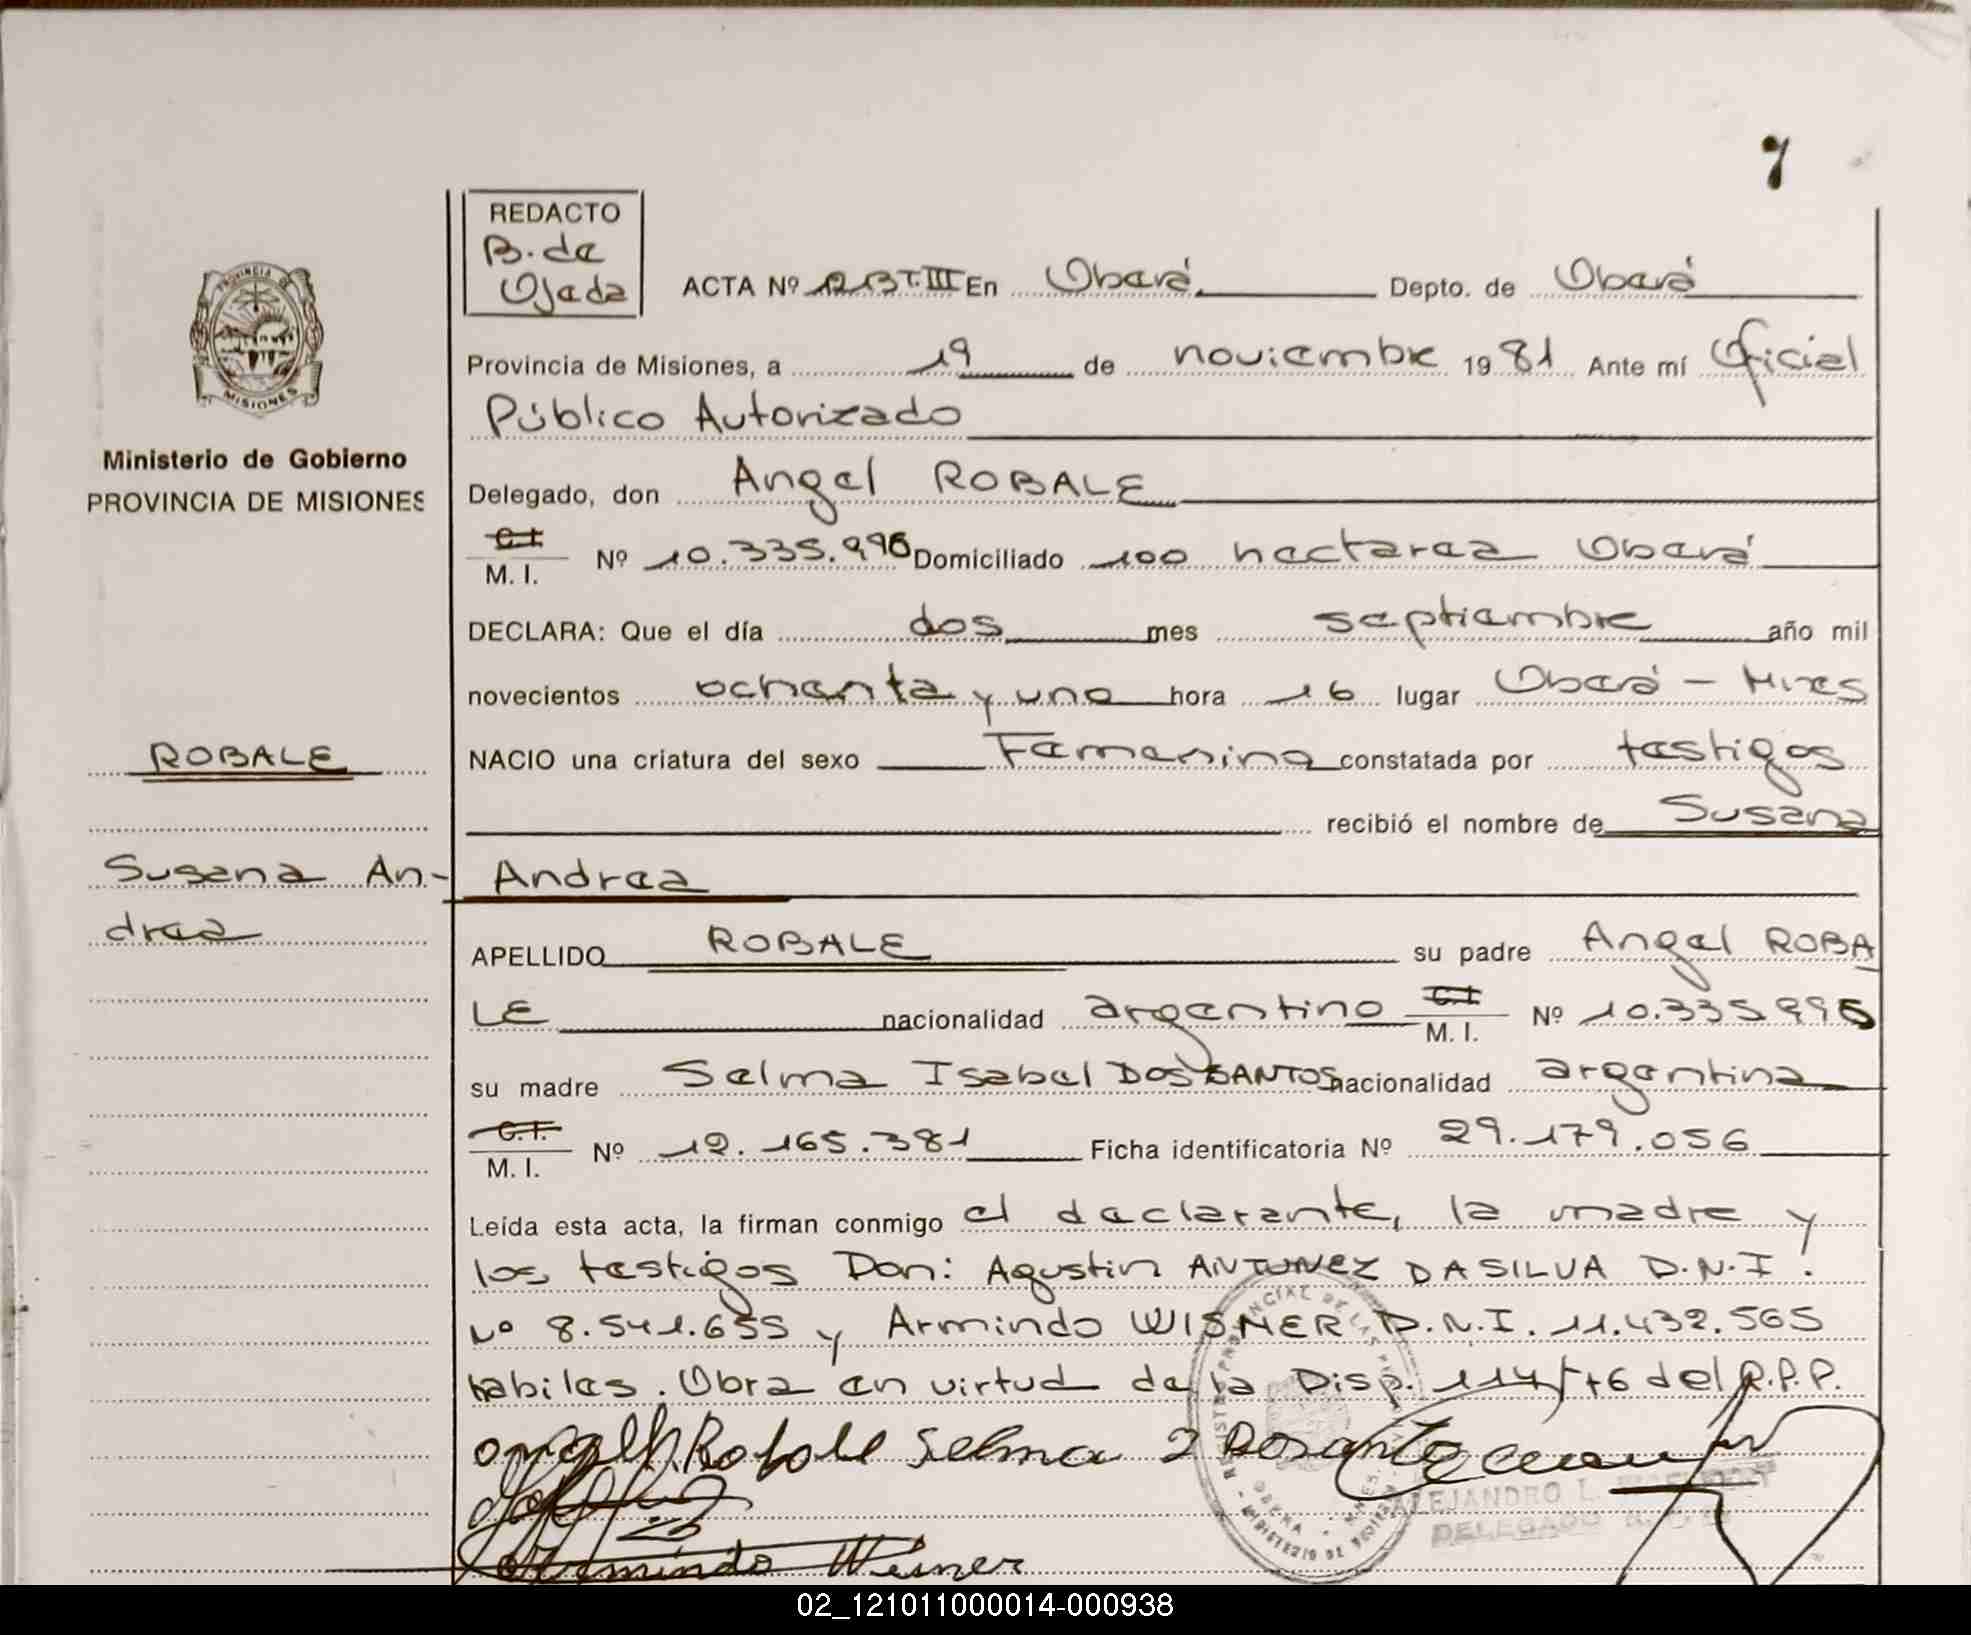 7
REDACTO
B. de
Ojeda
ACTA Nº 1213 T. III En Oberá Depto. de Oberá
Provincia de Misiones, a 19 de noviembre 1981 Ante mí Oficial
Público Autorizado
Ministerio de Gobierno
PROVINCIA DE MISIONES
Delegado, don Angel ROBALE
C.I.
M. I. Nº 10.335.996 Domiciliado 100 hectarea Oberá
DECLARA: Que el día dos mes septiembre año mil
novecientos ochenta y uno hora 16 lugar Oberá - Mnes
ROBALE
NACIO una criatura del sexo Femenino constatada por testigos
recibió el nombre de Susana
Susana An-
drea
Andrea
APELLIDO ROBALE su padre Angel ROBA
LE nacionalidad argentino C.I. M. I. Nº 10.335.996
su madre Selma Isabel DOS SANTOS nacionalidad argentina
C.I.
M. I. Nº 12.165.381 Ficha identificatoria Nº 29.179.056
Leída esta acta, la firman conmigo el declarante, la madre y
los testigos Don: Agustin ANTUNEZ DA SILVA D.N.I.
Nº 8.541.655 y Armindo WISNER D.N.I. 11.432.565
habiles. Obra en virtud de la Disp. 114/76 del R.P.P.
Selma I Dosantos
Armindo Wisner
ALEJANDRO L.
DELEGADO
02_121011000014-000938